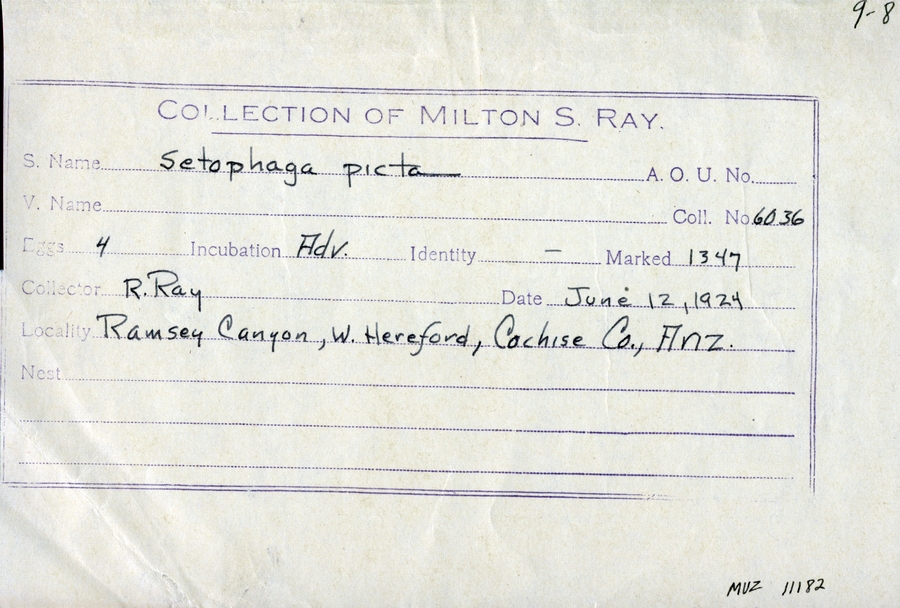 9-8
COLLECTION OF MILTON S. RAY.
S. Name Setophaga picta A. O. U. No.
V. Name Coll. No 6036
Eggs 4 Incubation Adv. Identity — Marked 1347
Collector R. Ray Date June 12, 1924
Locality Ramsey Canyon, W. Hereford, Cochise Co., Ariz.
Nest
MVZ 11182